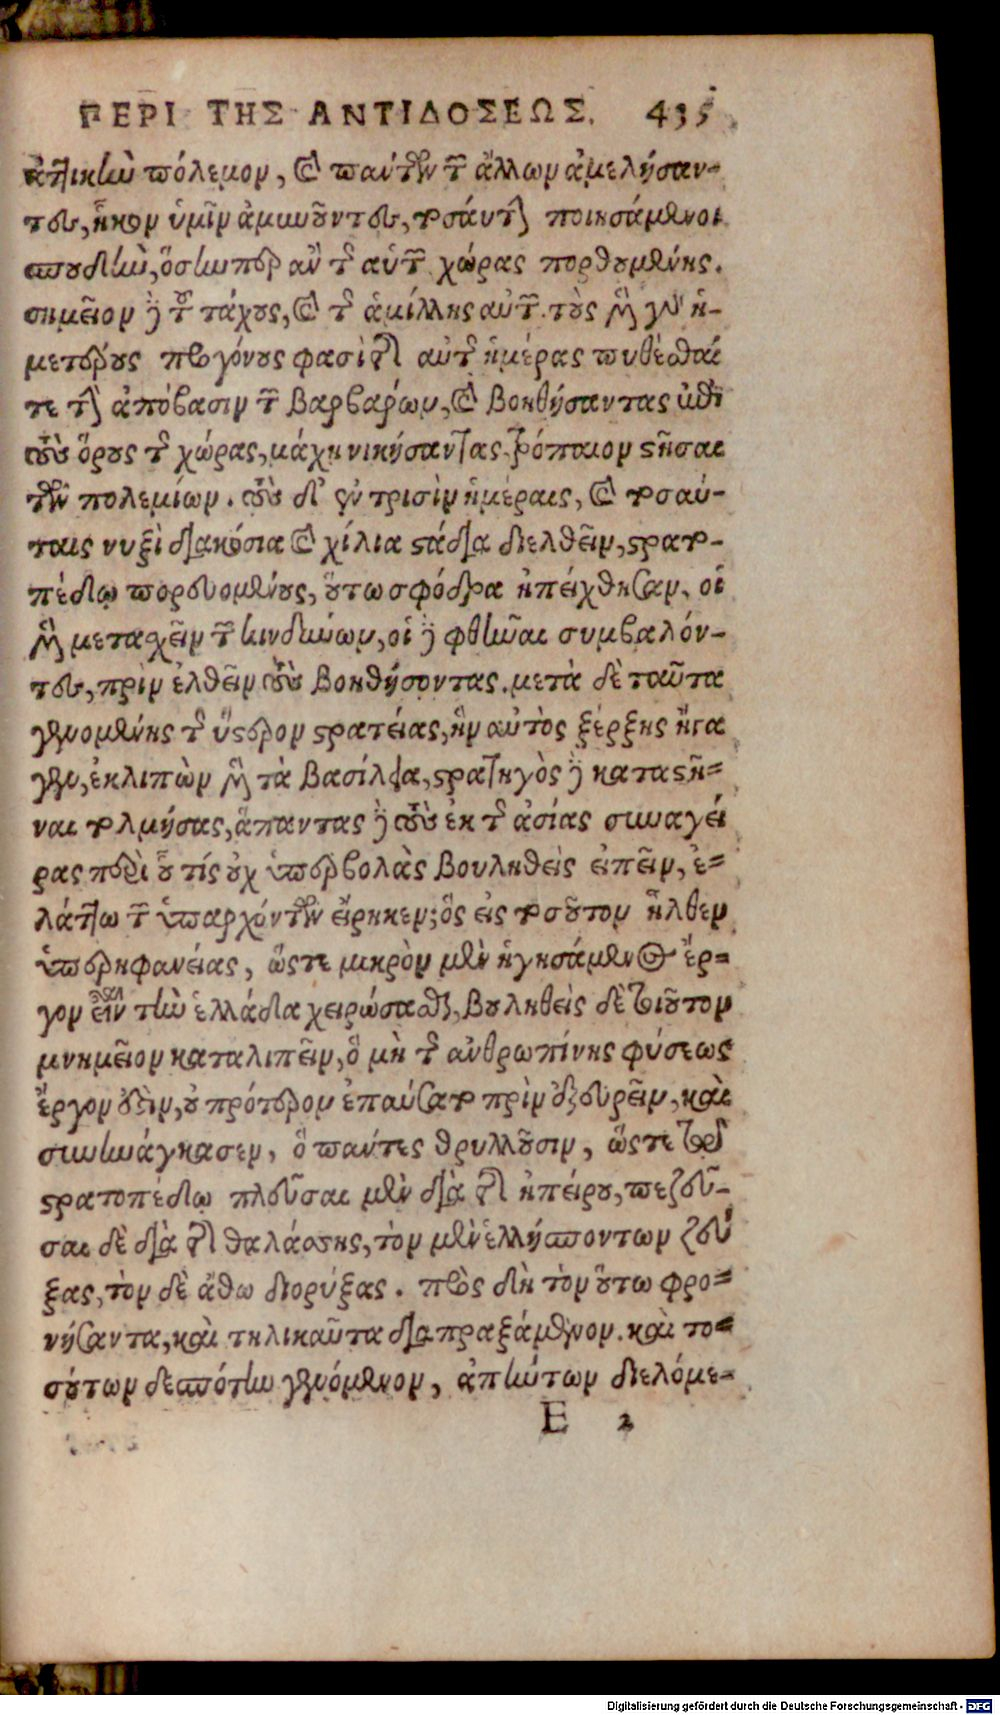 ΠΕΡΙ ΤΗΣ ΑΝΤΙΔΟΣΕΩΣ. 435
ἀττικὴν πόλεμον, καὶ πάντων τῶν ἄλλων ἀμελήσαν-
τες, ἧκον ὑμῖν ἀμυνοῦντες, τοσαύτην ποιησάμενοι
σπουδὴν, ὅσην περ ἂν τῆς αὑτῶν χώρας πορθουμένης.
σημεῖον δὲ τοῦ τάχους, καὶ τῆς ἁμίλλης αὐτῶν. τοὺς μὲν γὰρ ἡ-
μετέρους προγόνους φασὶ τῆς αὐτῆς ἡμέρας πυθέσθαι
τε τὴν ἀπόβασιν τῶν βαρβάρων, καὶ βοηθήσαντας ἐπὶ
τοὺς ὅρους τῆς χώρας, μάχῃ νικήσαντας τρόπαιον στῆσαι
τῶν πολεμίων. τοὺς δ' ἐν τρισὶν ἡμέραις, καὶ τοσαύ-
ταις νυξὶ διακόσια καὶ χίλια στάδια διελθεῖν, στρατο-
πέδῳ πορευομένους, οὕτω σφόδρα ἠπείχθησαν, οἱ
μὲν μετασχεῖν τῶν κινδύνων, οἱ δὲ φθῆναι συμβαλόν-
τες, πρὶν ἐλθεῖν τοὺς βοηθήσοντας. μετὰ δὲ ταῦτα
γενομένης τῆς ὕστερον στρατείας, ἣν αὐτὸς ξέρξης ἤγα
γεν, ἐκλιπὼν μὲν τὰ βασίλεια, στρατηγὸς δὲ καταστῆ-
ναι τολμήσας, ἅπαντας δὲ τοὺς ἐκ τῆς ἀσίας συναγεί
ρας περὶ οὗ τίς οὐχ ὑπερβολὰς βουληθεὶς εἰπεῖν, ἐ-
λάττω τῶν ὑπαρχόντων εἴρηκεν; ὃς εἰς τοσοῦτον ἦλθεν
ὑπερηφανείας, ὥστε μικρὸν μὲν ἡγησάμενος ἔρ-
γον εἶναι τὴν ἑλλάδα χειρώσασθαι, βουληθεὶς δὲ τοιοῦτον
μνημεῖον καταλιπεῖν, ὃ μὴ τῆς ἀνθρωπίνης φύσεως
ἔργον ἐστὶν, οὐ πρότερον ἐπαύσατο πρὶν ἐξευρεῖν, καὶ
συνηνάγκασεν, ὃ πάντες θρυλλοῦσιν, ὥστε τῷ
στρατοπέδῳ πλεῦσαι μὲν διὰ τῆς ἠπείρου, πεζεῦ-
σαι δὲ διὰ τῆς θαλάσσης, τὸν μὲν ἑλλήσποντον ζεύ
ξας, τὸν δὲ ἄθω διορύξας. πρὸς δὴ τὸν οὕτω φρο-
νήσαντα, καὶ τηλικαῦτα διαπραξάμενον. καὶ το-
σούτων δεσπότην γενόμενον, ἀπήντων διελόμε-
E 2
Digitalisierung gefördert durch die Deutsche Forschungsgemeinschaft - DFG